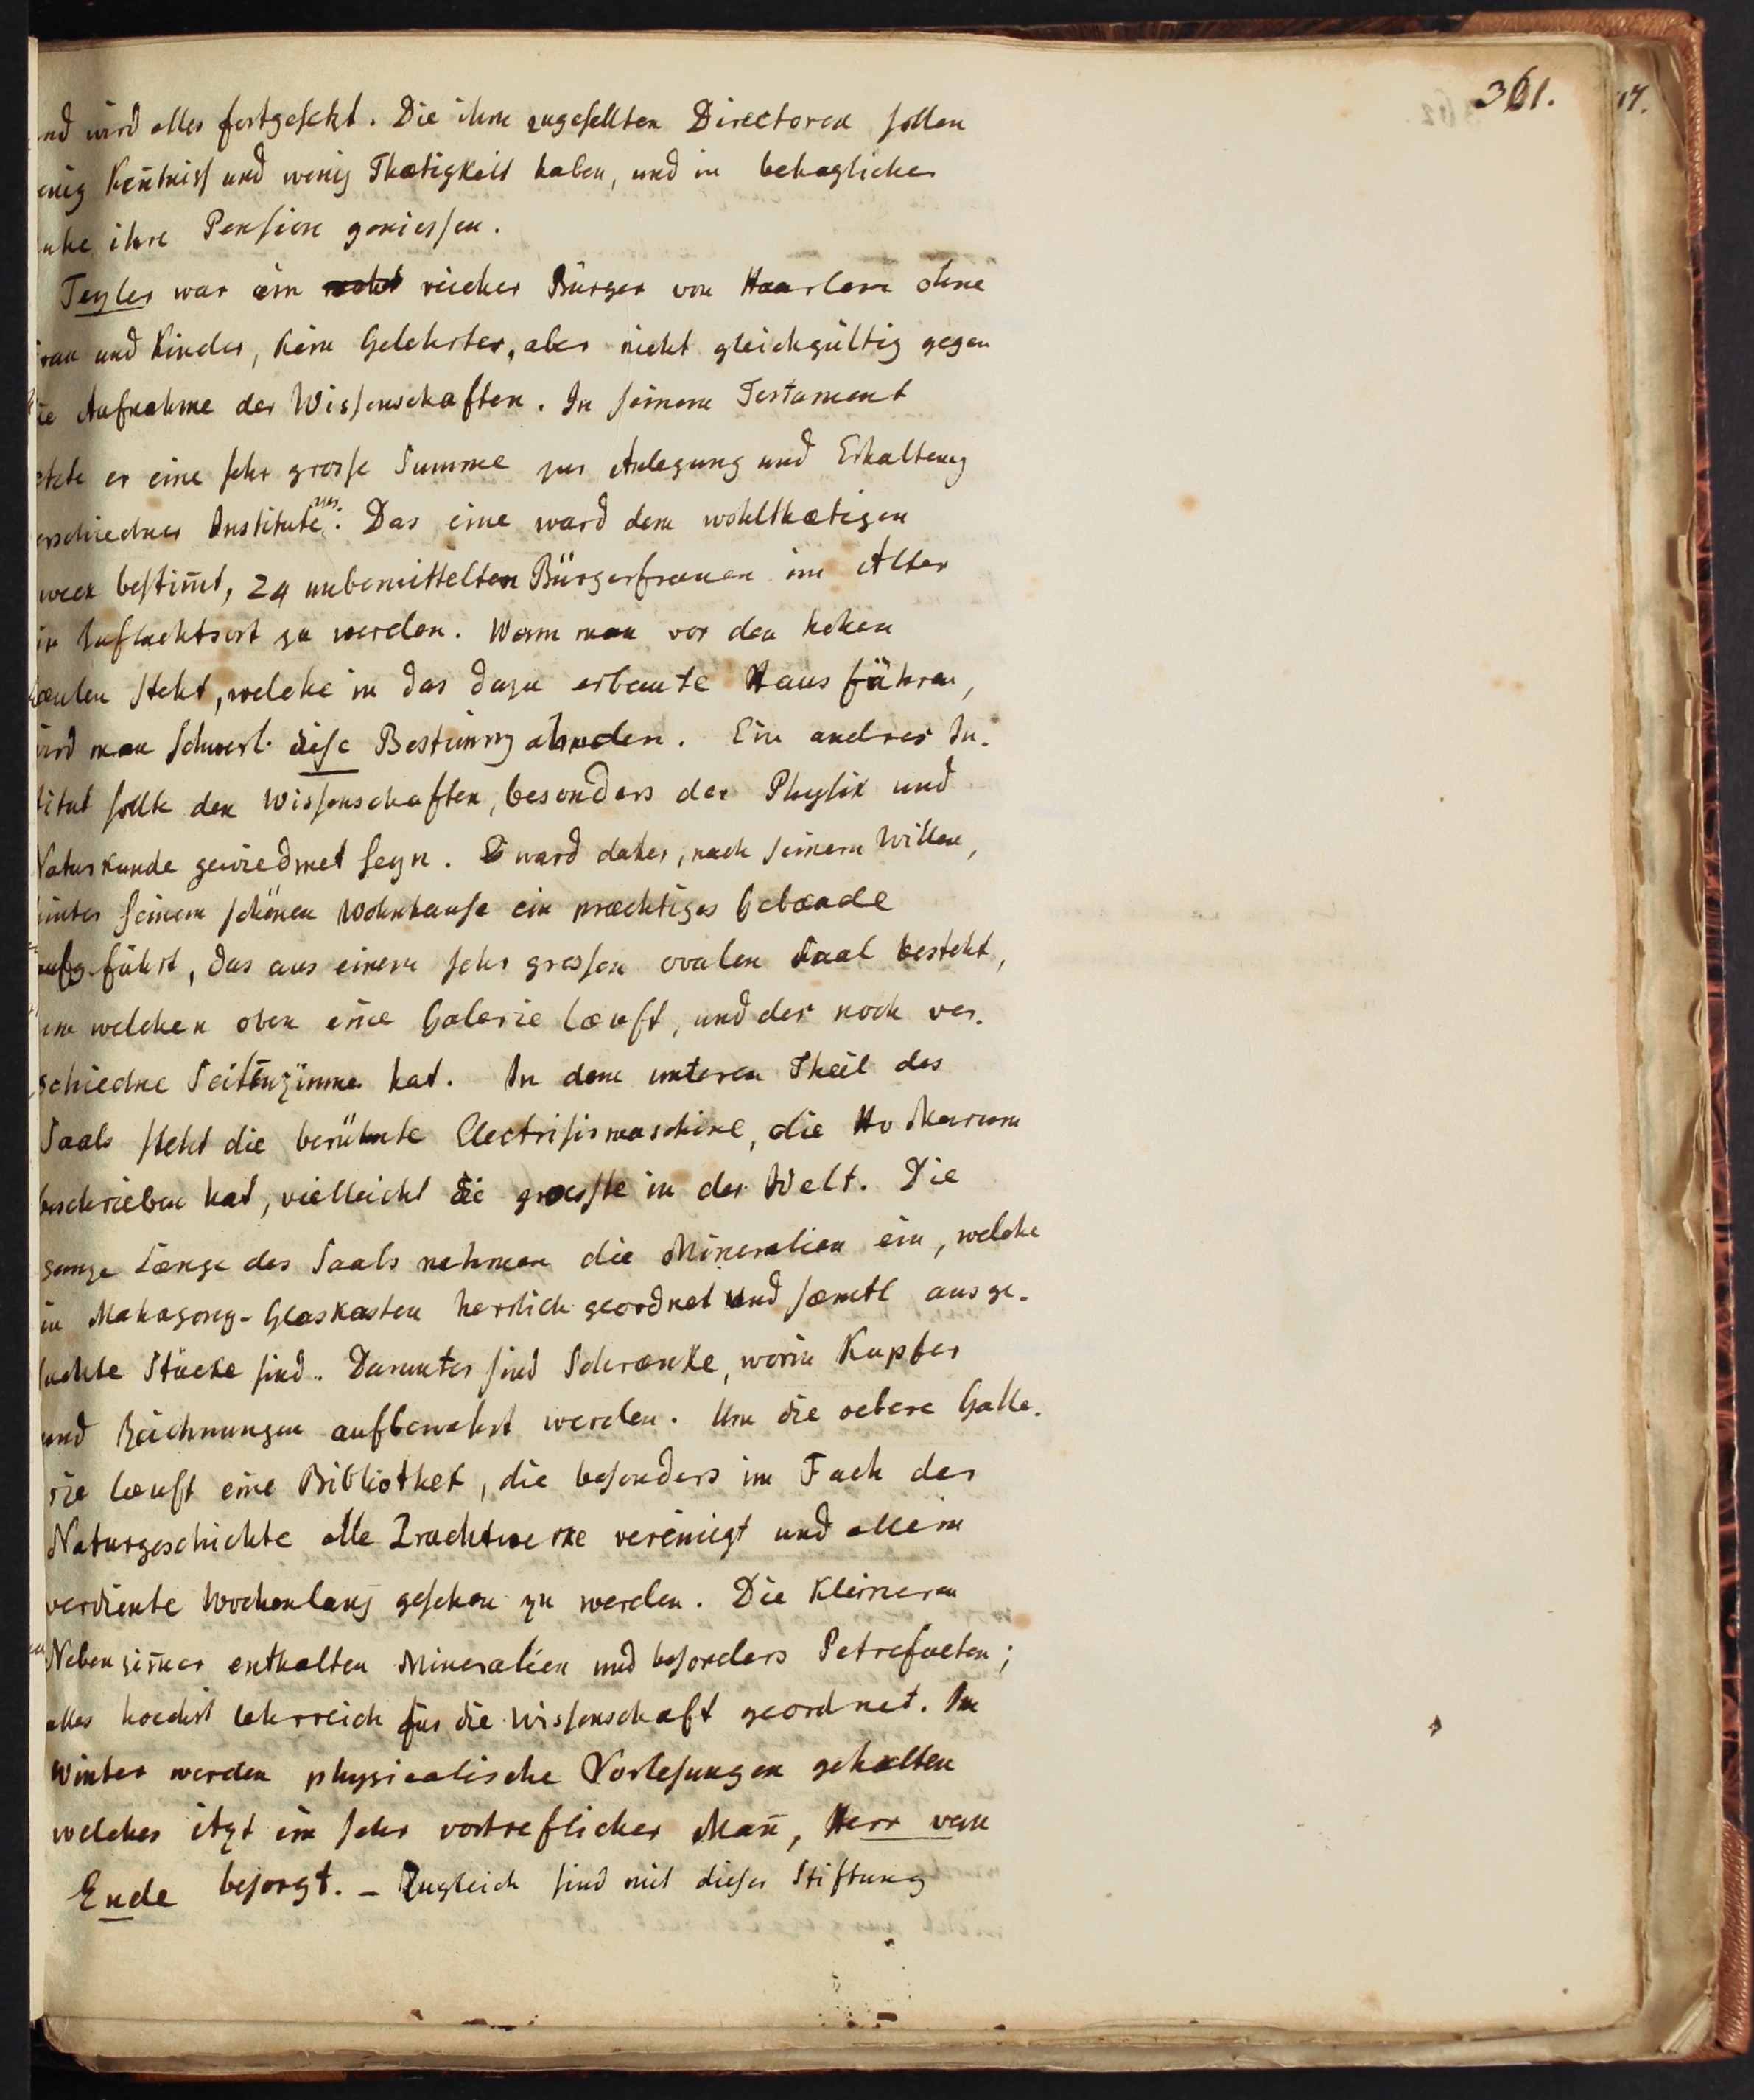 361.
17.
nd wird alles fortgesetzt. Die ihm zugesellten Directoren sollen
enig Keñtniss und wenig Thætigkeit haben, und in behaglicher
uhe ihre Pension geniessen.
Teyler war ein reicher Bürger von Haarlem ohne
rau und Kinder, kein Gelehrter, aber nicht gleichgültig gegen
ie Aufnahme der Wissenschaften. In seinem Testament
etzte er eine sehr grosse Summe zur Anlegung und Erhaltung
erschiedner Institute aus. Das eine ward dem wohlthætigen
weck bestim̃t, 24 unbemittelten Bürgerfrauen im Alter
in Zufluchtsort zu werden. Wenn man vor den hohen
æulen steht, welche in das dazu erbaute Haus führen,
ird man schwerl. diese Bestimmg ahnden. Ein andres In-
titut sollte den Wissenschaften, besonders der Physik und
Naturkunde gewiedmet seyn. Es ward daher, nach seinem Willen,
hinter seinem schönen Wohnhause ein præchtiges Gebæude
aufgeführt, das aus einem sehr grossen ovalen Saal besteht,
um welchen oben eine Galerie læuft, und der noch ver-
schiedne Seitenzimmer hat. In dem unteren Theil des
Saals steht die berühmte Electrisirmaschine, die Hv Marum
beschrieben hat, vielleicht die grœsste in der Welt. Die
ganze Længe des Saals nehmen die Mineralien ein, welche
in Mahagony-Glaskasten herrlich geordnet und sæmtl ausge-
suchte Stücke sind. Darunter sind Schrænke, worin Kupfer
und Zeichnungen aufbewahrt werden. Um die oebere Galle-
rie læuft eine Bibliothek, die besonders im Fach der
Naturgeschichte alle Prachtwerke vereinigt und allein
verdiente Wochenlang gesehen zu werden. Die kleineren
Nebenzim̃er enthalten Mineralien und besonders Petrefacten;
alles hoechst lehrreich für die Wissenschaft geordnet. Im
Winter werden physicalische Vorlesungen gehalten
welches itzt ein sehr vortreflicher Mañ, Herr van
Ende besorgt. – Zugleich sind mit dieser Stiftung